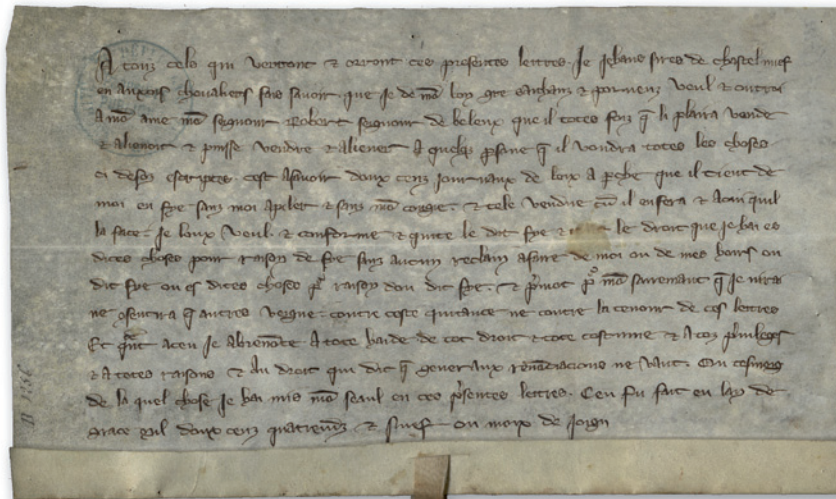 A touz celx qui verront & orront ces presentes lettres. Je Jehans sires de chastel nuef
en auxois chevaliers fais savoir que je de mō bon gre sachanz & porveuz veul & outroi
a mō ame mō seignour Robert seignour de beleux que il totes foiz q̄ li plaira vende
& alienoit & puisse vendre & aliener a quelq̄ psōne q̄ il vondra totes les choses
ci desoz escriptes. cest a savoir doux cenz jornaux de bois a pche que il tient de
moi en fye sanz moi apeler & sanz mō congie. & tele vendue cū il en fera & a cui quil
la face. je loux veul & conferme & quite le dit fye & le droit que je hai es
dites choses pour raison de fye sanz aucun reclain a faire de moi ou de mes hoirs ou
dit fye ou es dites choses p raison dou dit fye. & pmot p mō sairemant q̄ je nirai
ne ōsentirai q̄ autres veigne contre ceste quitance ne contre la tenour de ces lettres
Et qnt a ceu je ai renōce a tote baide de tot droit & tote costume & a toz privileges
& a totes raisons & au droit qui dit q̄ generaux renōciacions ne vaut. On tesmoig
de la quel chose je hai mis mō seaul en ces psentes lettres. Ceu fu fait en lan de
grace mil doux cenz quatrevinz & nuef ou mois de joign
B 1336